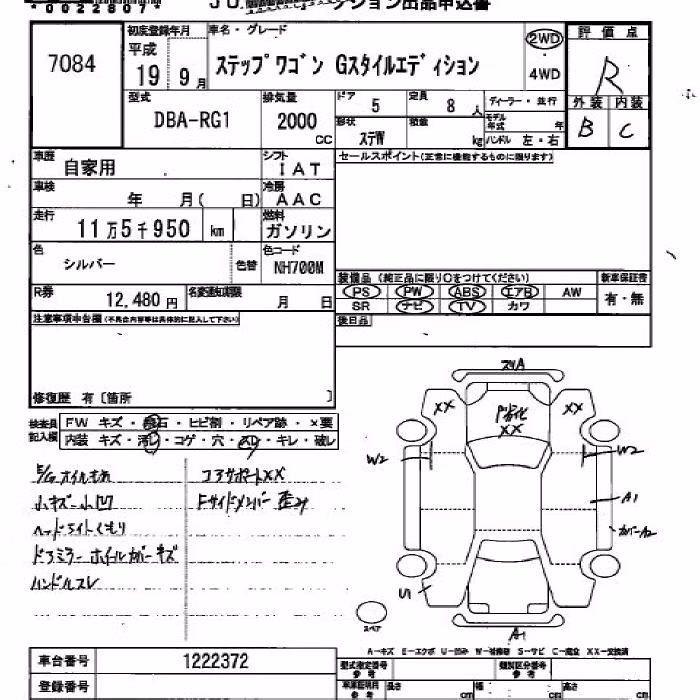 *0022807*
ション出品申込書
7084
初度登録年月
平成
19 9月
車名・グレード
ステップワゴン Gスタイルエディション
2WD
4WD
評価点
R
外装 内装
B C
型式
DBA-RG1
排気量
2000
CC
ドア 5
定員 8 人
ディーラー・並行
形状 ステW
積載 kg
モデル年式 年
ハンドル 左・右
車歴 自家用
シフト IAT
セールスポイント(正常に機能するものに限ります)
車検 年 月( 日)
冷房 AAC
走行 11万5千950 km
燃料 ガソリン
色 シルバー
色替
色コード NH700M
装備品 (純正品に限り○をつけてください)
新車保証書
PS PW ABS エアB AW
有・無
SR ナビ TV カワ
R券 12,480円
名変通知期限 月 日
後日品
注意事項申告欄(不具合内容等は具体的に記入して下さい)
修復歴 有〔箇所 〕
検査員記入欄
FW キズ・飛石・ヒビ割・リペア跡・×要
内装 キズ・汚れ・コゲ・穴・スレ・キレ・破レ
コアサポートXX
小キズ小凹
Fサイドメンバー歪み
ヘッドライトくもり
ドアミラーホイルカバーキズ
ハンドルスレ
XX
XX
XX
W2
W2
A1
カバーA2
U
スペア
A1
A-キズ E-エクボ U-凹み W-補修跡 S-サビ C-腐食 XX-交換済
車台番号 1222372
型式指定番号 参考
類別区分番号 参考
登録番号
車庫証明用 参考
長さ cm
幅 cm
高さ cm